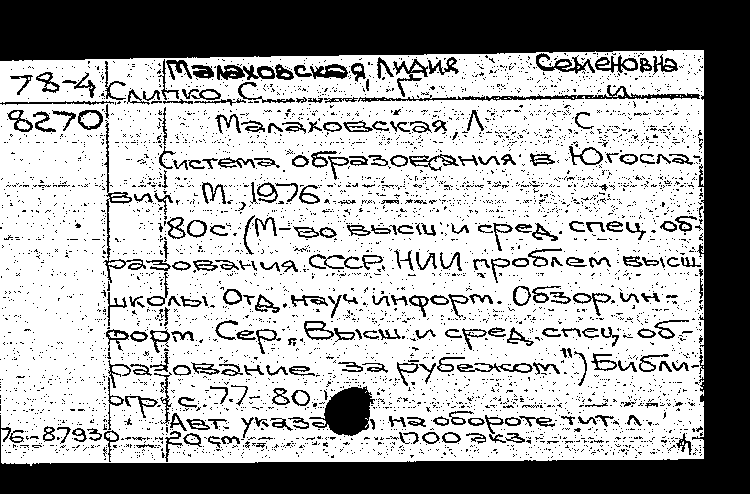 Малаховская, Лидия Семеновна
78-4 Слипко, С. Г. и
8270 Малаховская, Л С
Система образования в Югосла-
вии. М., 1976.
80с. (М-во высш. и сред. спец. об-
разования СССР. НИИ проблем высш.
школы. Отд. науч. информ. Обзор. ин-
форм. Сер. „Высш. и сред. спец. об-
разование за рубежом") Библи-
огр. с. 77-80.
Авт. указаны на обороте тит. л.
76-87930 20 см 1700 экз.